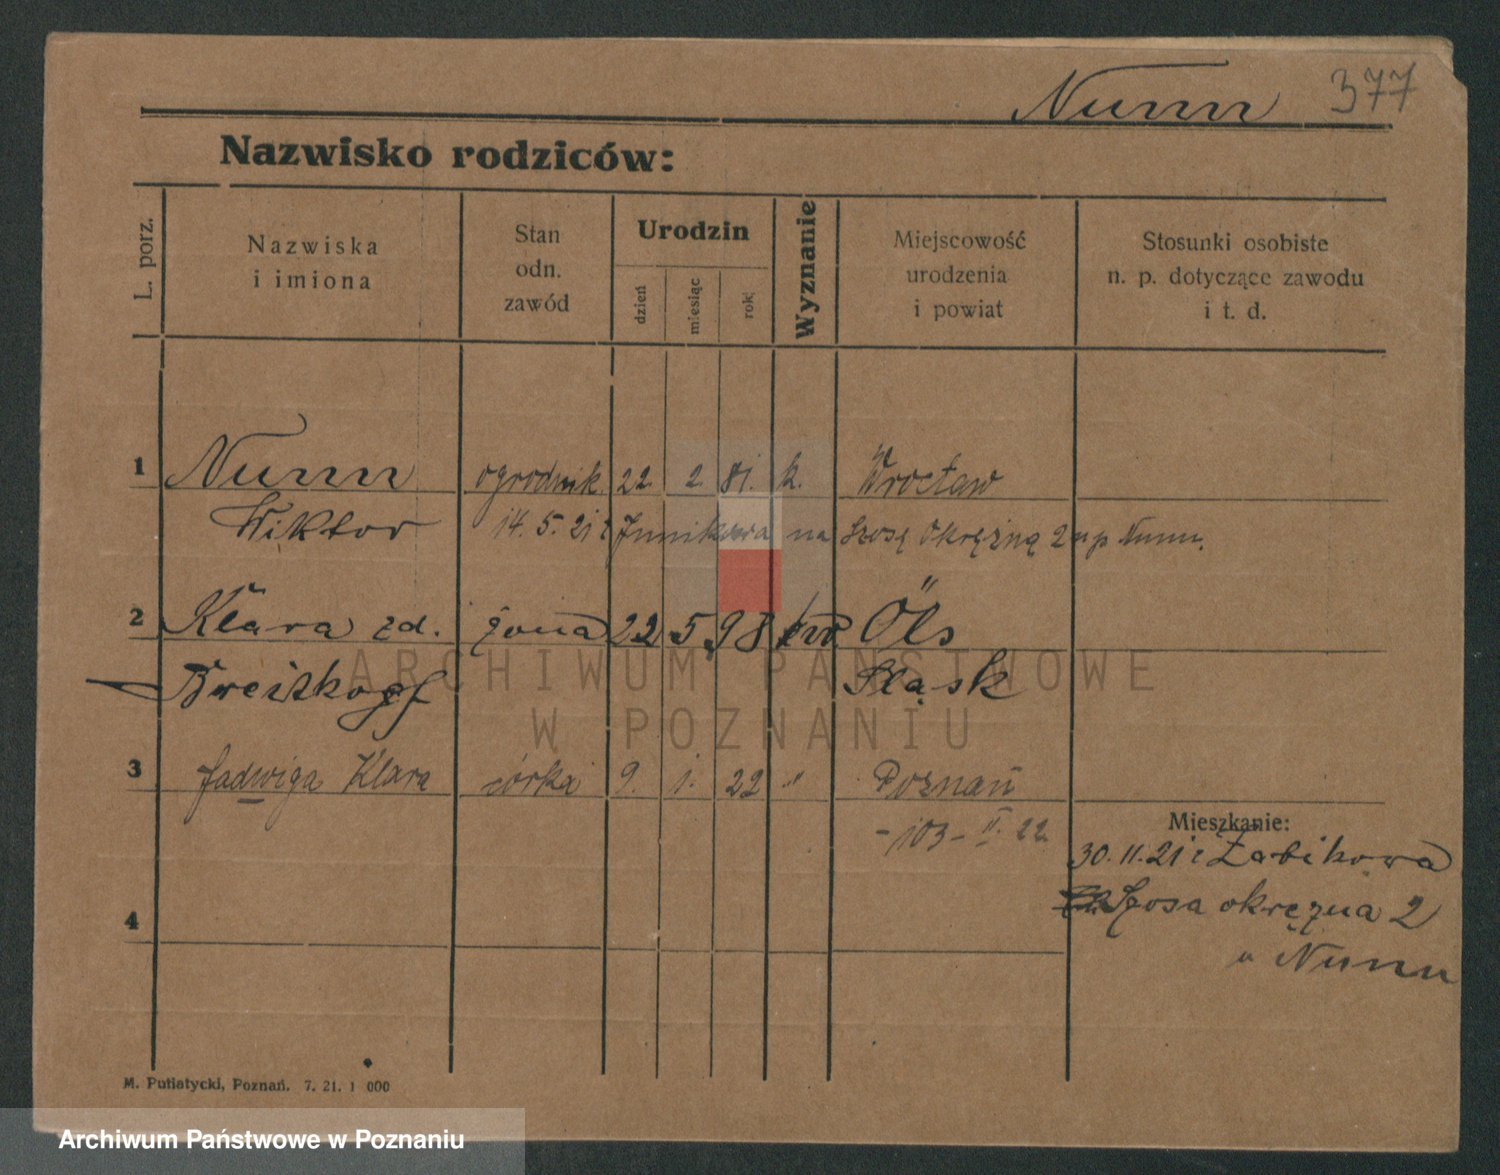 Nunn 377
Nazwisko rodziców:
L. porz.
Nazwiska
i imiona
Stan
odn.
zawód
Urodzin
dzień
miesiąc
rok
Wyznanie
Miejscowość
urodzenia
i powiat
Stosunki osobiste
n. p. dotyczące zawodu
i t. d.
1 Nunn ogrodnik 22. 2. 81. k. Wrocław
Wiktor 14. 5. 21 z Junikowa na Szosę Okrężną 2 up Nunn.
2 Klara zd. żona 22 5. 98 Öls
Breitkopf Śląsk
ARCHIWUM PAŃSTWOWE
W POZNANIU
3 Jadwiga Klara córka 9. 1. 22 " Poznań
- 103 - II. 22.
Mieszkanie:
30. 11. 21 z Żabikowa
Szosa okrężna 2
u Nunn
4
M. Putiatycki, Poznań. 7. 21. 1 000
Archiwum Państwowe w Poznaniu